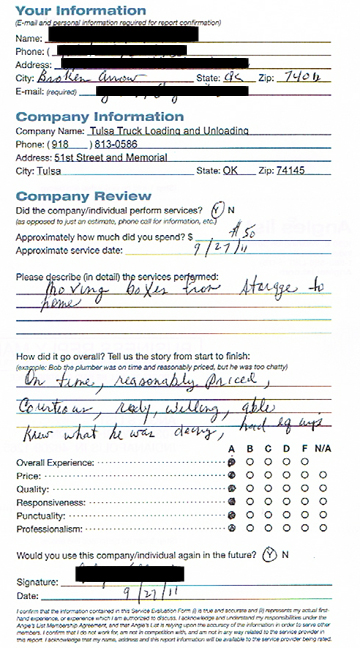 Your Information
(E-mail and personal information required for report confirmation)
Name:
Phone: (
Address:
City: Broken Arrow State: Zip: 740
E-mail: (required)
Company Information
Company Name: Tulsa Truck Loading and Unloading
Phone: (918 ) 813-0586
Address: 51st Street and Memorial
City: Tulsa State: OK Zip: 74145
Company Review
Did the company/individual perform services? Y N
(as opposed to just an estimate, phone call for information, etc.)
Approximately how much did you spend? $ $50
Approximate service date: 9/27/11
Please describe (in detail) the services performed:
Moving boxes from storage to
home
How did it go overall? Tell us the story from start to finish:
(example: Bob the plumber was on time and reasonably priced, but he was too chatty)
On time, reasonably priced,
Courteous, ready, willing, able
Knew what he was doing, had equip
A B C D F N/A
Overall Experience:
Price:
Quality:
Responsiveness:
Punctuality:
Professionalism:
Would you use this company/individual again in the future? Y N
Signature:
Date: 9/27/11
I confirm that the information contained in this Service Evaluation Form (i) is true and accurate and (ii) represents my actual first-
hand experience, or experience which I am authorized to discuss. I acknowledge and understand my responsibilities under the
Angie's List Membership Agreement, and that Angie's List is relying upon the accuracy of the information in order to serve other
members. I confirm that I do not work for, am not in competition with, and am not in any way related to the service provider in
this report. I acknowledge that my name, address and this report information will be available to the service provider being rated.